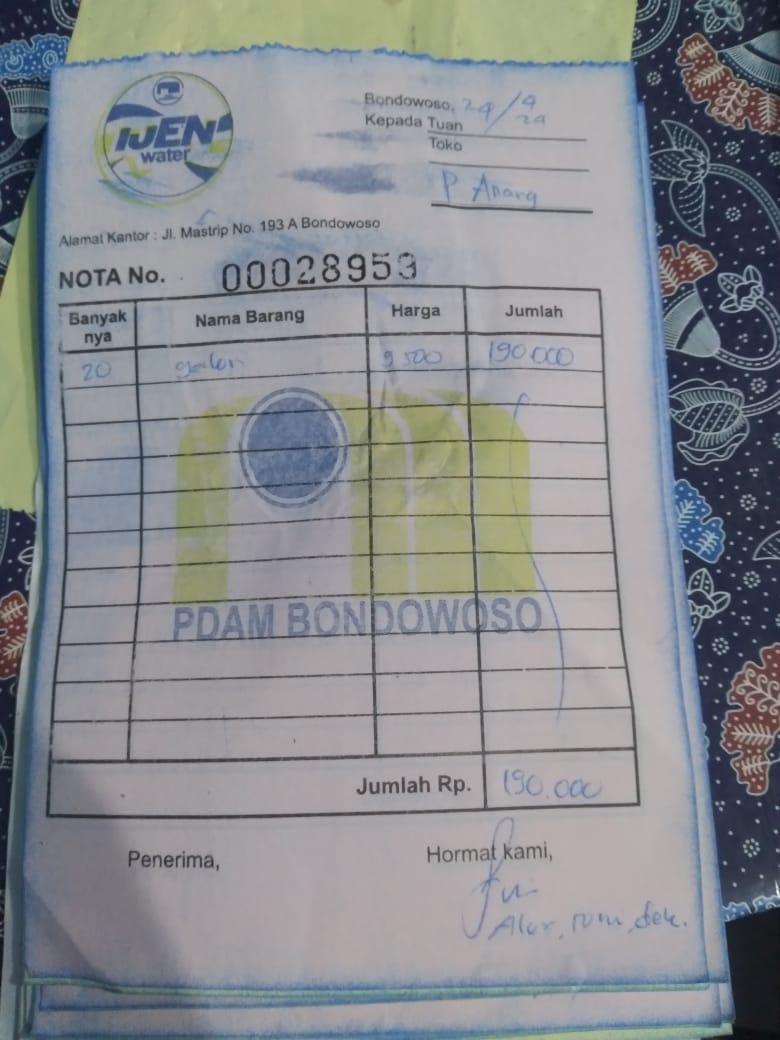 IJEN
water
Bondowoso, 24/4
24
Kepada Tuan
Toko
P Anang
Alamat Kantor : Jl. Mastrip No. 193 A Bondowoso
NOTA No. 00028953
Banyak nya Nama Barang Harga Jumlah
20 galon 9500 190.000
PDAM BONDOWOSO
Jumlah Rp. 190.000
Penerima, Hormat kami,